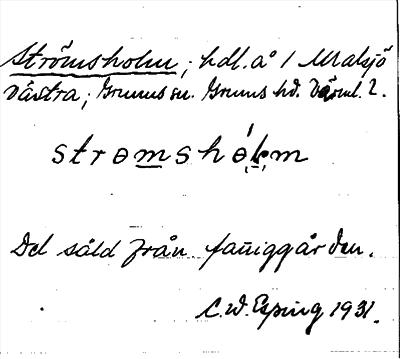 Strömsholm, hdl. å 1 Malsjö
Västra, Grums sn. Grums hd. Värml. l.
strømshølm
Del såld från faniggården.
C.W. Esping 1931.